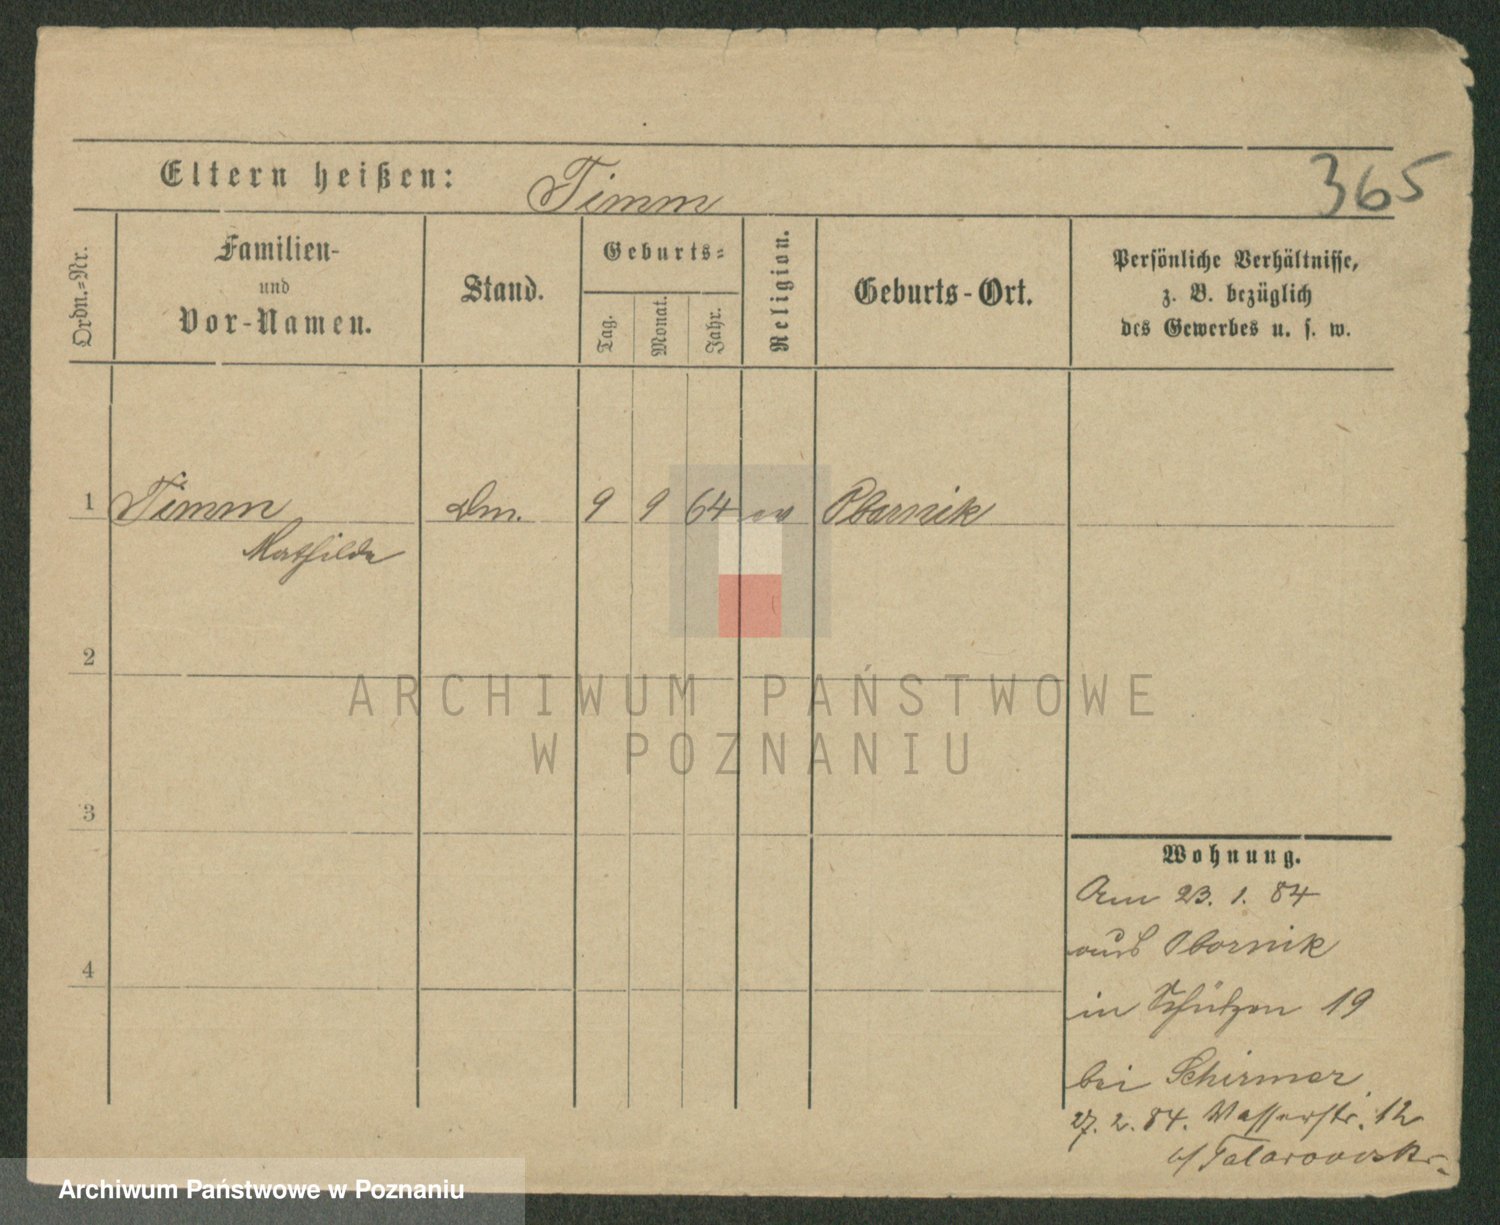 365
Eltern heißen: Timm
Ordn.=Nr.
Familien-
und
Vor-Namen.
Stand.
Geburts=
Tag.
Monat.
Jahr.
Religion.
Geburts-Ort.
Persönliche Verhältnisse,
z. B. bezüglich
des Gewerbes u. s. w.
1 Timm Dm. 9 9 64 ev Obornik
Mathilde
2
3
4
ARCHIWUM PAŃSTWOWE
W POZNANIU
Wohnung.
Am 23. 1. 84
aus Obornik
in Schützen 19
bei Schirmer
27. 2. 84. Wasserstr. 12
Archiwum Państwowe w Poznaniu